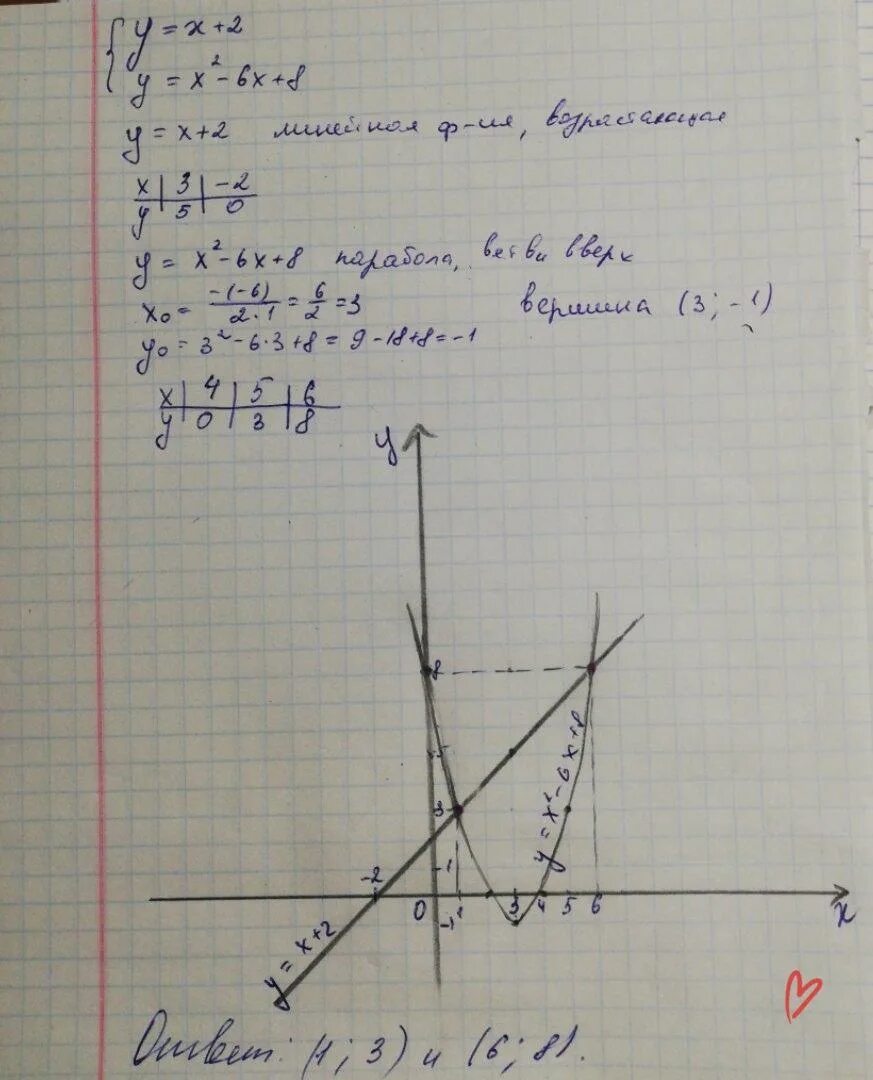 { y = x+2
y = x² - 6x + 8
y = x+2 линейная ф-ия, возрастающая
x | 3 | -2
y | 5 | 0
y = x² - 6x + 8 парабола, ветви вверх
x₀ = -(-6)/2·1 = 6/2 = 3 вершина (3; -1)
y₀ = 3² - 6·3 + 8 = 9 - 18 + 8 = -1
x | 4 | 5 | 6
y | 0 | 3 | 8
y
8
5
3
y = x² - 6x + 8
1
-2
0 1 3 4 5 6
-1
x
y = x+2
Ответ: (1; 3) и (6; 8).